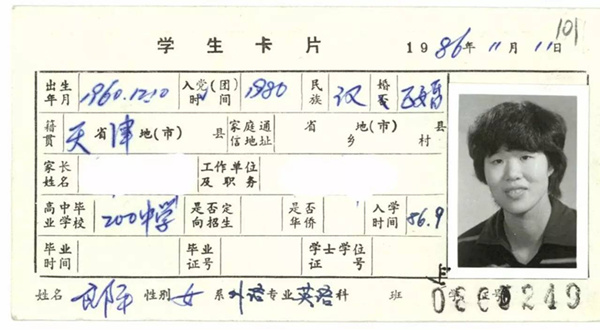 101
学生卡片 1986年11月11日
出生年月 1960.12.10 入党(团)时间 1980 民族 汉 婚否 已婚
籍贯 天津 省 地(市) 县 家庭通信地址 省 地(市) 县 乡 村
家长姓名 工作单位及职务
高中毕业学校 200中学 是否定向招生 是否华侨 入学时间 86.9
毕业时间 毕业证号 学士学位证号
姓名 郎平 性别 女 系 外语 专业 英语 科 班 学生证号